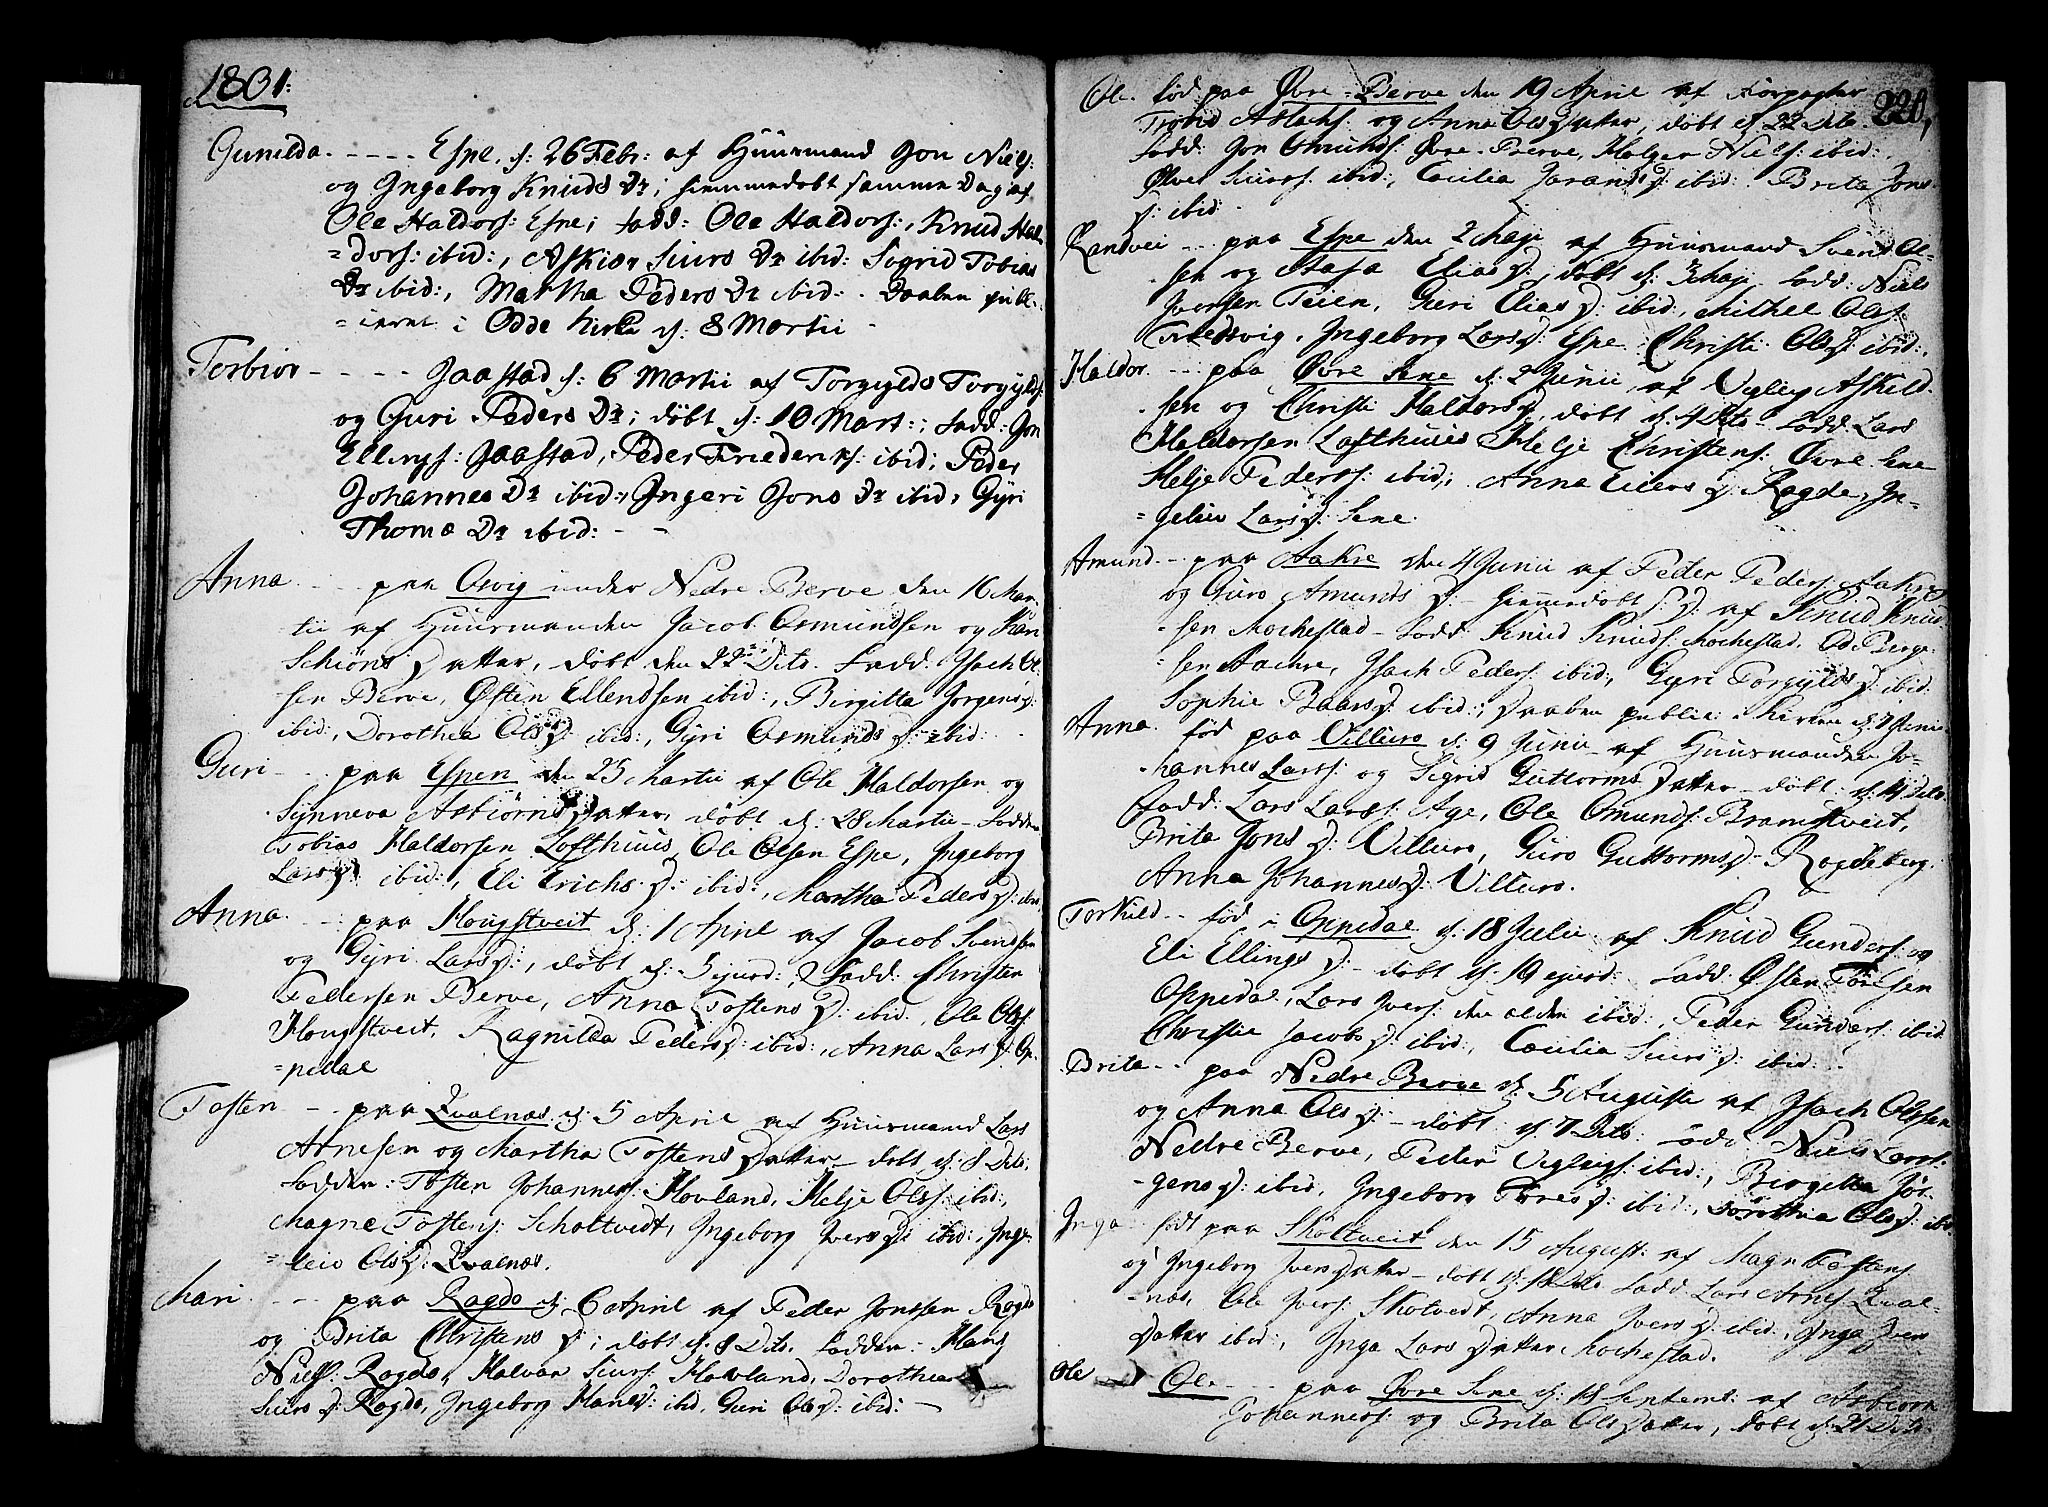 1801:
Gunilda. - - - - Espe. d: 26 Febr: af Huusmand Jon Niels:
og Ingeborg Knuds Dr; hiemmedøbt samme Dag af
Ole Haldors: Espe; fadd: Ole Haldors:, Knud Hal
=dors: ibid:, Askior Siurs Dr ibid: Sygrid Tobias
Dr ibid:, Martha Peders Dr ibid: . Daaben publi
=ceret i Odde Kirke d: 8 Martii -
Torbior - - - - - Jaastad d: 6 Martii af Torgyld Torgylds:
og Guri Peders Dr; døbt d: 10 Mart:; fadd: Jon
Ellings: Jaastad, Peder Friederiks: ibid; Peder
Johannes Dr ibid:, Ingeri Jons Dr ibid: Gyri
Thomæ Dr ibid: - -
Anna. - - - paa Osvig under Nedre Berve den 16 Mar
tii af Huusmanden Jacob Osmundsen og Kari
Schiøns Datter, døbt den 22 Dito. Fadd. Isach Ol
sen Berve, Østen Ellendsen ibid:, Birgitta Jørgens D:
ibid:, Dorothea Ols D: ibid:, Gyri Osmunds D: ibid:
Guri - - - paa Espen den 25 Martii af Ole Haldorsen og
Synneva Asbiørns Datter, døbt d: 28 Martii - Fadder
Tobias Haldorsen Lofthuus, Ole Olsen Espe, Ingeborg
Lars D: ibid:, Eli Erichs D: ibid:, Martha Peders D: ibid
Anna. - - - paa Hougstveit d: 1 April af Jacob Svendsen
og Gyri Lars D:, døbt d: 5 ejusd: Fadd: Christen
Pedersen Berve, Anna Tostens D: ibid:, Ole Ols:
Hougstveit, Ragnilda Peders D: ibid:, Anna Lars D: Op-
=pedal
Tosten - - paa Qvalnæs d: 5 April af Huusmand Lars
Arnesen og Martha Tostens Datter - døbt d: 8 Dito.
Fadder: Tosten Johannes: Hovland, Helje Ols: ibid:,
Magne Tostens: Scholtvedt, Ingeborg Ivers D: ibid:, Inge-
=leiv Ols D: Qvalnæs.
Mari - - - paa Ragde d: 6 April af Peder Jonssen Ragde
og Brita Christens D:; døbt d: 8 Dito. Fadder: Hans
Niels: Ragde, Halvar Siurs: Hovland, Dorothea
Siurs D: Ragde, Ingeborg Hans D: ibid, Guri Ols D: ibid: -
220,
Ole. fød paa Øvre Berve den 19 April af Forpagter
Aslachs: og Anna Ols Datter, døbt d: 22 Dito.
Fadd: Jon Omunds: Øvre-Berve, Holger Niels: ibid:,
Siurs: ibid:, Cæcilia D: ibid: Brita Jons
D: ibid.
Randvei - - paa Espe den 2 Maji af Huusmand Svend Ol-
sen og Aasa Elias D:, døbt d: 3 Maji, Fadd: Niels
Iversen Teien, Guri Elias D: ibid:, Mithel Ols:
Ingeborg Lars D: Espe, Christi Ols D: ibid:,
Haldor. - - paa Øvre Sexe d: 2 Junii, af Vigleg Askild
sen og Christi Haldors D:, døbt d: 4 Dito - Fadd: Lars
Haldorsen Lofthuus Helje Christens: Øvre Sexe
Helje Peders: ibid:, Anna Eilers D: Ragde, In-
=geliev Lars D: Sexe.
Amund. - paa Aakre den 4 Junii af Peder Peders: Aakre
og Guro Amunds D: - Hiemmedøbt af Knud Knud-
sen Mochestad - Fadd: Knud Knuds: Mochestad, Od Berge
sen Aachre, Isach Peders: ibid:, Gyri Torgylds D: ibid
Sophie Baars D: ibid:, Daaben public: i Kirken d: 7 Junii
Anna. fød paa Villure d: 9 Junii af Huusmanden Jo-
hannes Lars: og Sigrid Guttorms Datter - døbt: d: 14 Dito
Fadd: Lars Lars: Age, Ole Omunds: Bramstveit,
Brita Jons D: Villure, Guro Guttorms D: Ragdeberg.
Anna Johannes D: Villure.
Torkild - - fød i Oppedal d: 18 Julii af Knud Gunders: og
Eli Ellings D: - døbt d: 19 ejusd: Fadd: Østen
Oppedal, Lars Ivers: den ælder ibid:, Peder Gunders: ibid
Christie Jacobs D: ibid:, Cæcilia Siurs D: ibid: .
Brita - - paa Nedre Berve d: 5 Auguste af Isach Olssen
og Anna Ols D: - døbt d: 7 Dito: Fadd: Niels Lars:
Nedre Berve, Peder Viglegs: ibid:, Birgitta Jør-
-gens D: ibid, Ingeborg D: ibid:, Dorothea Ols D: ibid
Inga født paa Skoltveit den 15 August: af Magn Tostens
og Ingeborg Ivers Datter - døbt d: 18 Dito Fadd Lars Arnes: Qval-
=næs, Ole Ivers: Skoltvedt, Anna Ivers D: ibid:, Inga Ivers
Datter ibid:, Inga Lars Datter Mochestad.
Ole Ole - - paa Øvre Sexe d: 18 Septemb: af Asbiørn
Johannes: og Brita Ols Datter, døbt d: 21 Dito.